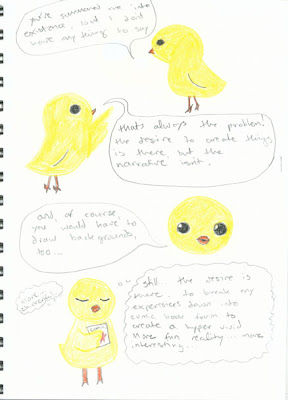 you've summoned me into
existence, but I don't
have anything to say
thats always the problem!
the desire to create things
is there but the
narrative isnt.
and, of course,
you would have to
draw backgrounds,
too...
still... the desire is
there to break my
experiences down into
comic book form to
create a hyper vivid
more fun reality... more
interesting...
more